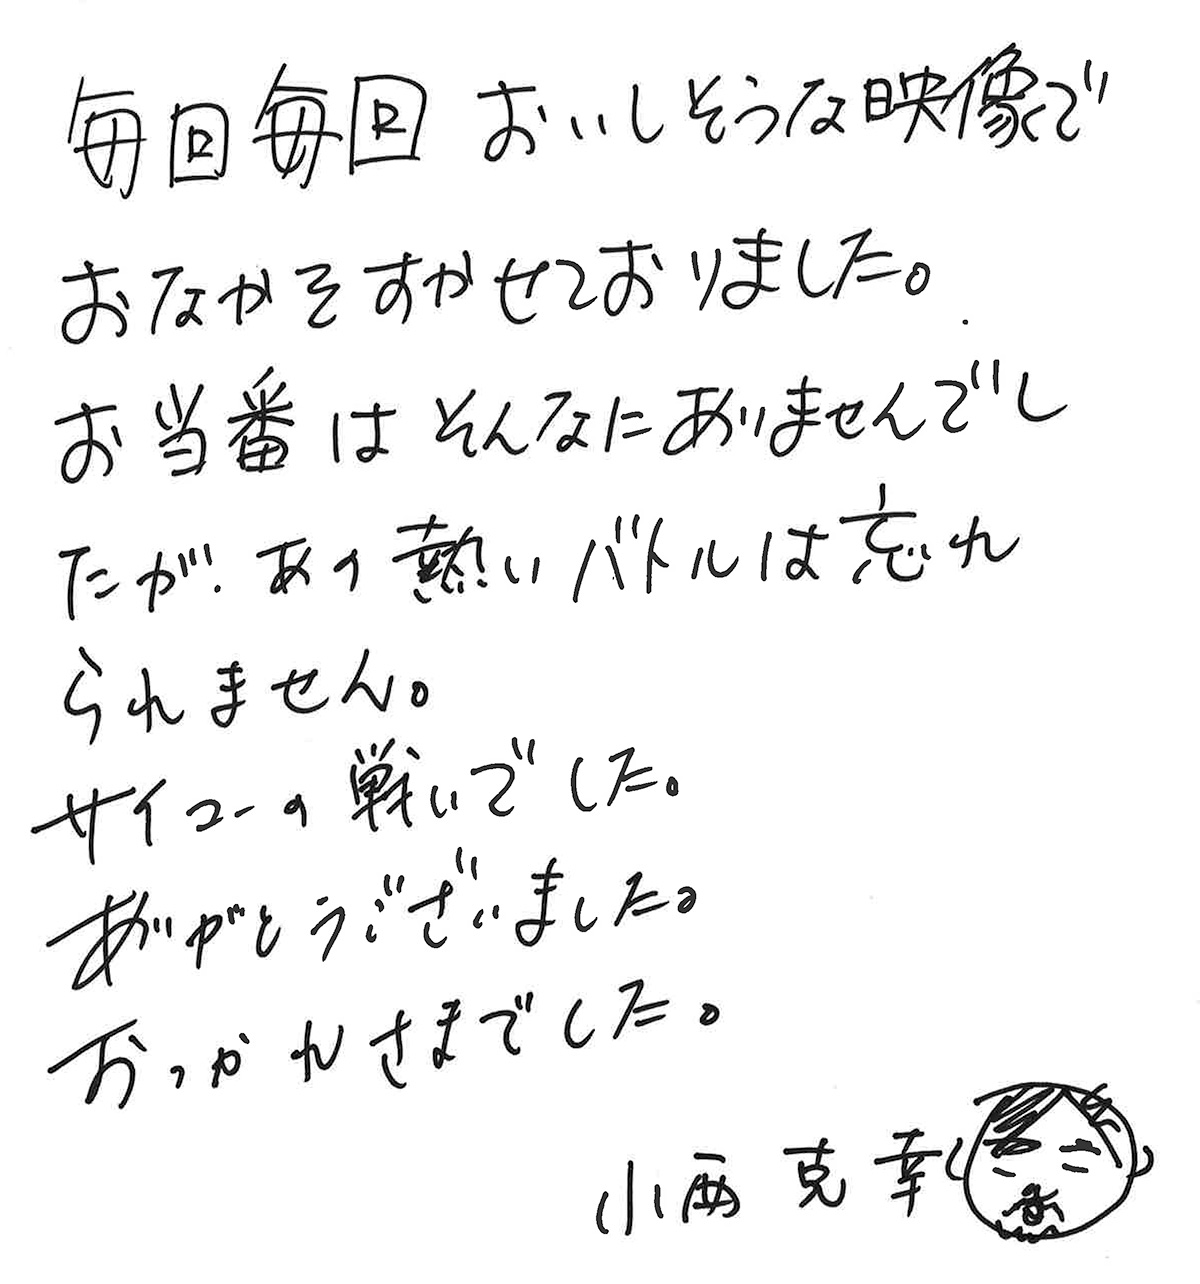 毎回毎回おいしそうな映像で
おなかそすかせておりました。
お当番はそんなにありませんでし
たが、あの熱いバトルは忘れ
られません。
サイコーの戦いでした。
ありがとうございました。
おつかれさまでした。
小西克幸